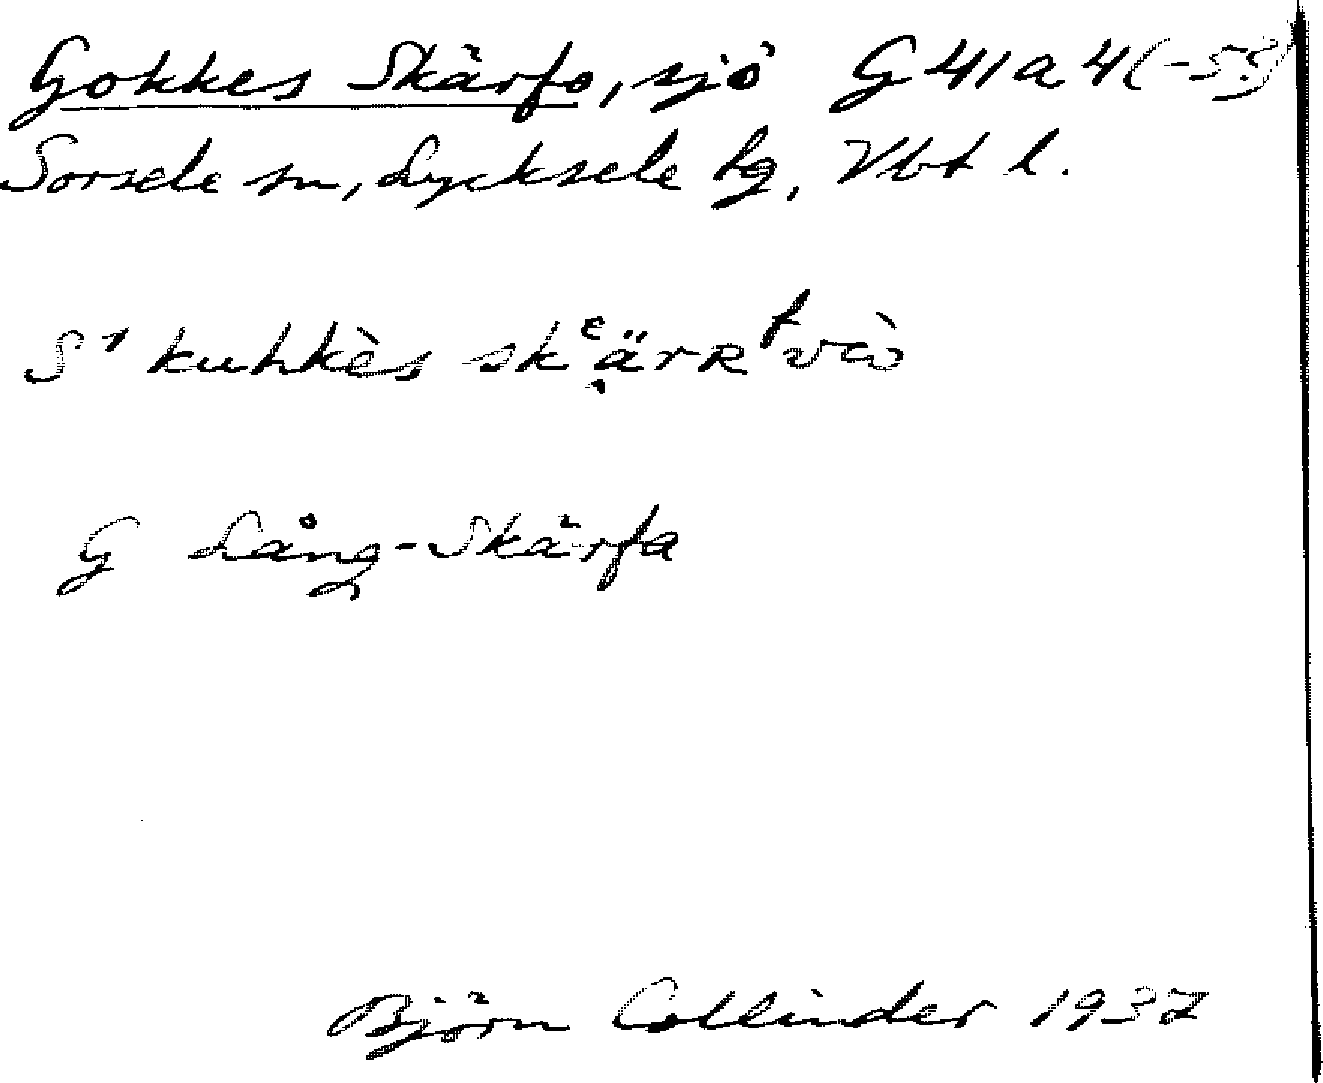 Gokkes Skärfo, sjö G 41 a 4 (-5?)
Sorsele sn, Lycksele lg, Vbt l.
S¹ kuhkès skᵉärʀᶠvò
G Lång-Skärfa
Björn Collinder 1937